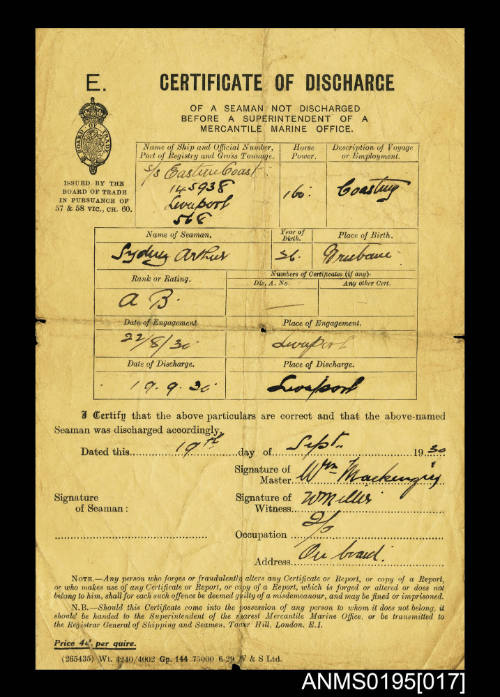 E. CERTIFICATE OF DISCHARGE
OF A SEAMAN NOT DISCHARGED
BEFORE A SUPERINTENDENT OF A
MERCANTILE MARINE OFFICE.
ISSUED BY THE
BOARD OF TRADE
IN PURSUANCE OF
57 & 58 VIC., CH. 60.
Name of Ship and Official Number, Port of Registry and Gross Tonnage.
Horse Power.
Description of Voyage or Employment.
s/s Eastern Coast
145938
Liverpool
568
160
Coasting
Name of Seaman.
Year of Birth.
Place of Birth.
Sydney Arthur
Brisbane
Rank or Rating.
Numbers of Certificates (if any).
Dis. A. No.
Any other Cert.
A B.
Date of Engagement
Place of Engagement.
22/8/30
Liverpool
Date of Discharge.
Place of Discharge.
19.9.30
Liverpool
I Certify that the above particulars are correct and that the above-named
Seaman was discharged accordingly.
Dated this 19th day of Sept. 1930
Signature of Master. Wm Mackenzie
Signature of Seaman:
Signature of Witness.
Occupation
Address. On board.
NOTE.—Any person who forges or fraudulently alters any Certificate or Report, or copy of a Report,
or who makes use of any Certificate or Report, or copy of a Report, which is forged or altered or does not
belong to him, shall for each such offence be deemed guilty of a misdemeanour, and may be fined or imprisoned.
N.B.—Should this Certificate come into the possession of any person to whom it does not belong, it
should be handed to the Superintendent of the nearest Mercantile Marine Office, or be transmitted to
the Registrar General of Shipping and Seamen, Tower Hill, London, E.1.
Price 4d. per quire.
(265435) Wt. 4240/4002 Gp. 144 75000 6.29 W & S Ltd.
ANMS0195[017]